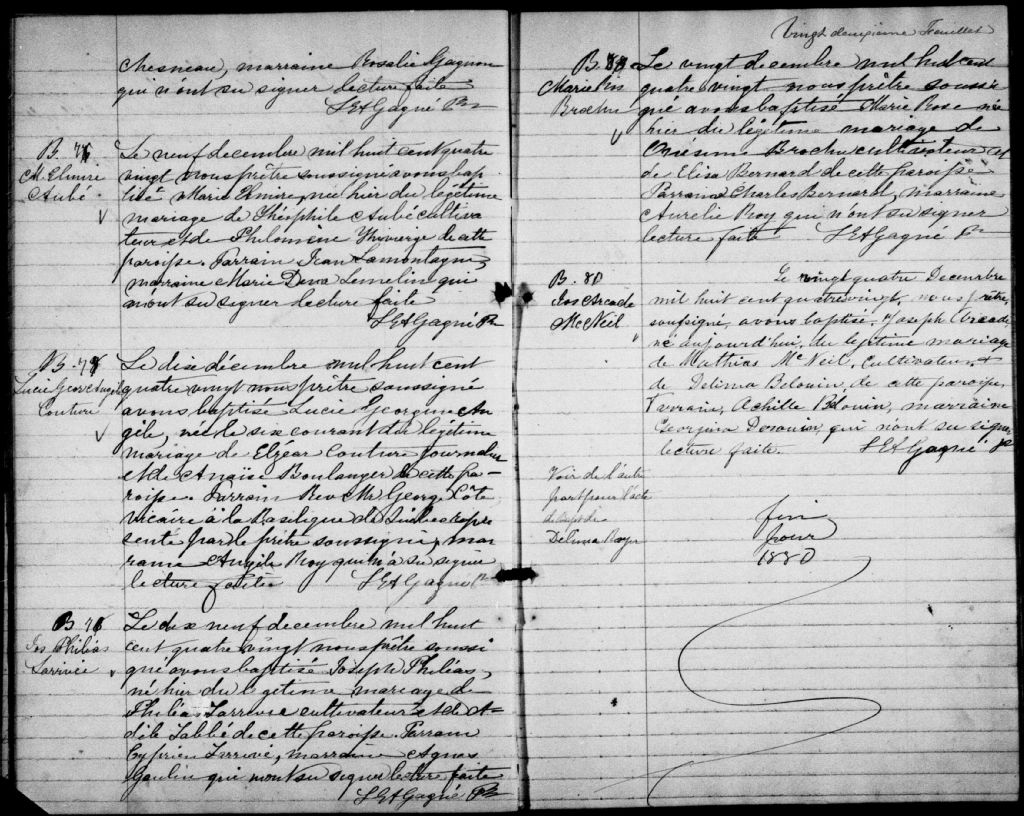 Chesneau, marraine Rosalie Gagnon
qui n'ont su signer lecture faite
LEAGagné Ptr
B. 76
M. Elmire
Aubé
Le neuf decembre mil huit cent quatre
vingt nous prêtre soussigné avons bap
tisé Marie Elmire, née hier du légitime
mariage de Théophile Aubé cultiva
teur et de Philomène Thivierge de cette
paroisse. Parrain Jean Lamontagne,
marraine Marie Lemelin qui
n'ont su signer lecture faite
LEAGagné Ptr
B. 77
Lucie Geor. Angèle
Couture
Le dix décembre mil huit cent
quatre vingt nous prêtre soussigné
avons baptisé Lucie Georgine An
gèle, née le six courant du légitime
mariage de Elzéar Couture journalier
et de Anaïse Boulanger de cette pa-
roisse. Parrain Rev Mr George Côté
vicaire à la Basilique de Québec repre
senté par le prêtre soussigné, mar
raine Angèle Roy qui n'a su signer
lecture faite LEAGagné Ptr
B. 78
Jos Philéas
Larrivée
Le dix neuf decembre mil huit
cent quatre vingt nous prêtre soussi
gné avons baptisé Joseph Philéas,
né hier du légetime mariage de
Philéas Larrivée cultivateur et de A-
dèle Labbé de cette paroisse. Parrain
Cyprien Larrivé, marraine Agnes
Goulin qui n'ont su signer lecture faite
LEAGagné Ptr
Vingt deuxième Feuillet
B. 79
Marie Rose
Brochu
Le vingt decembre mil huit cent
quatre vingt nous prêtre soussi
gné avons baptisé Marie Rose née
hier du légetime mariage de
Onésime Brochu cultivateur et
de Elise Bernard de cette paroisse
Parrain Charles Bernard, marraine
Aurelie Roy qui n'ont su signer
lecture faite LEAGagné Ptr
B. 80
Jos Arcade
McNeil
Le vingt quatre Decembre
mil huit cent quatre vingt, nous prêtre,
soussigné, avons baptisé Joseph Arcade,
né aujourd'hui, du légitime mariage
de Mathias McNeil, cultivateur, &
de Delima Blouin, de cette paroisse,
Parrain, Achille Blouin, marraine
Georgina qui n'ont su signer,
lecture faite. LEAGagné Ptr
Voir de l'autre
part pour l'acte
de
Delima Roy
fin
pour
1880